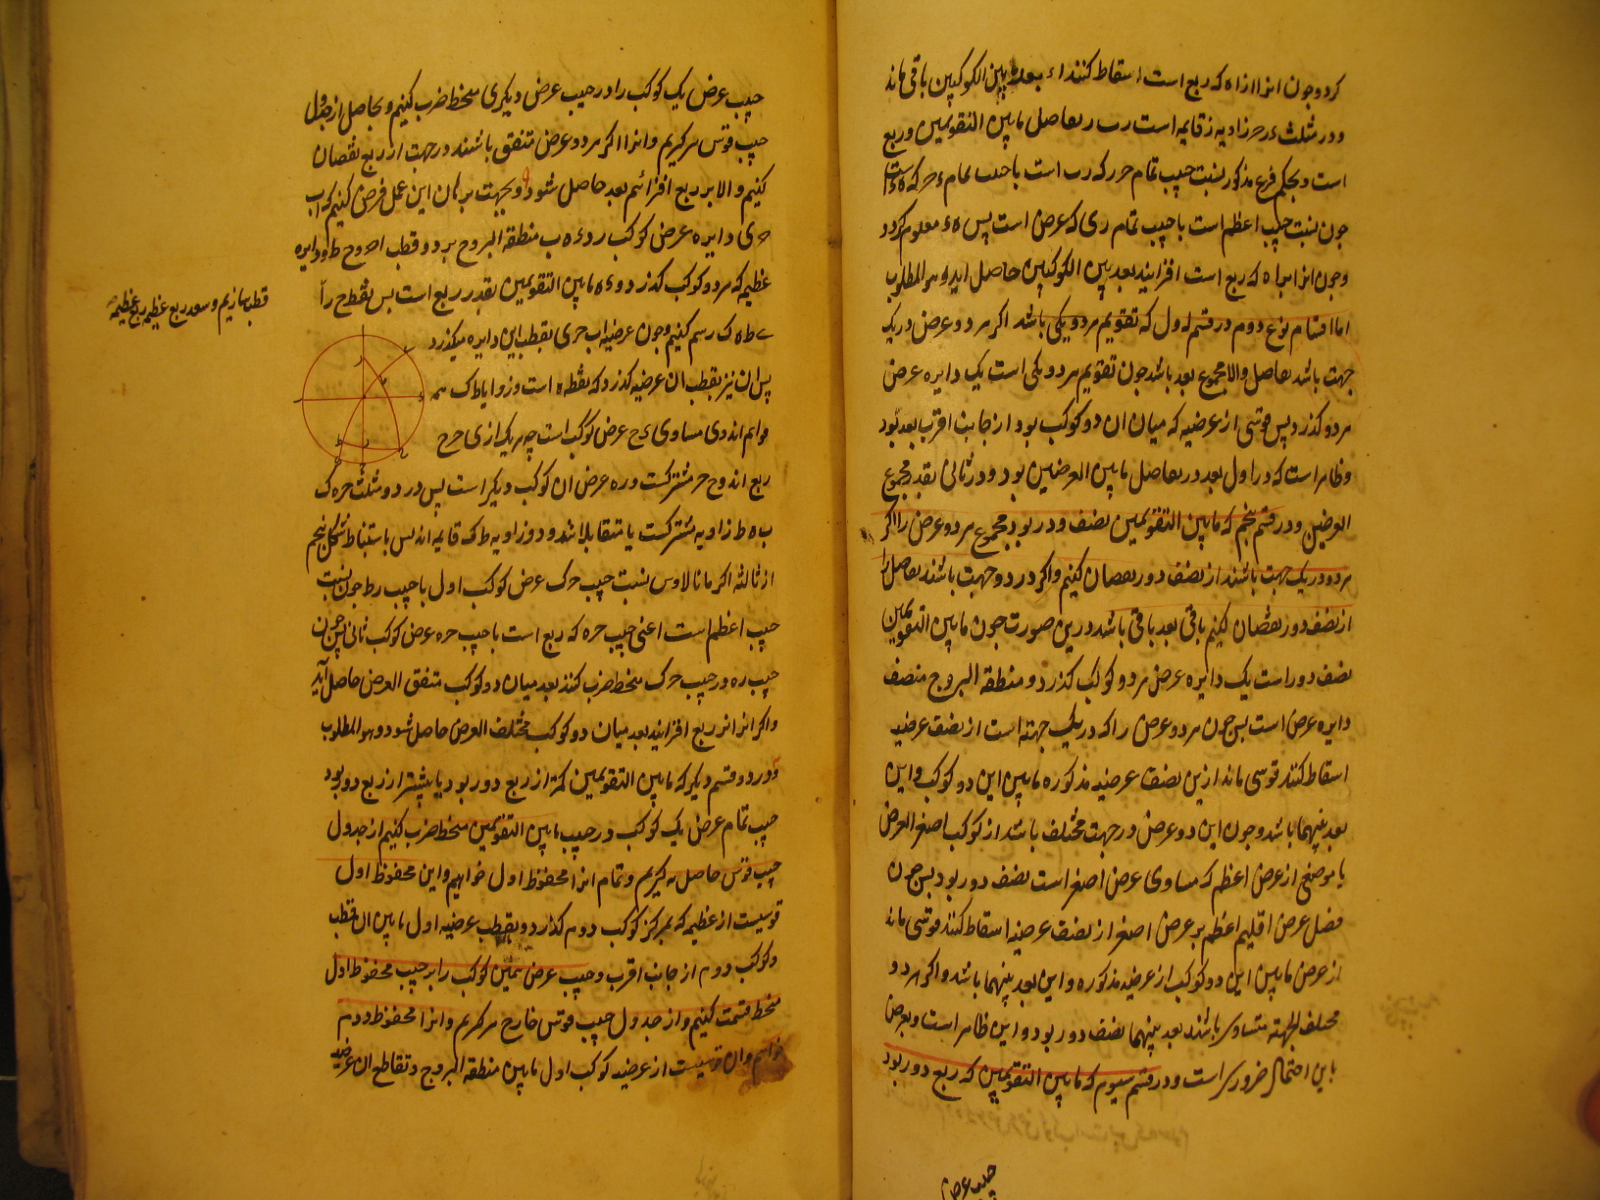 کرد و چون انرا از اه که ربع است اسقاط کنند اء بعد بین الکوکبین باقی ماند
و در مثلث ءرح زاویه ز قایمه است رب ر بفاصل مابین التقویمین و ربع
است و بحکم فرع مذکور نسبت جیب تمام حر که رب است با جیب تمام ءح که
چون نسبت جیب اعظم است با جیب تمام ری که عرض است پس هء معلوم کردد
و چون انرا بر اه که ربع است افزایند بعد بین الکوکبین حاصل اید و هو المطلوب
اما اقسام نوع دوم در قسم اول که تقویم هر دو یکی باشد اکر هر دو عرض در یک
جهت باشد بفاصل و الا مجموع بعد باشد چون تقویم هر دو یکی است یک دایره عرض
هر دو کذرد پس قوسی از عرضیه که میان ان دو کوکب بود از جانب اقرب بعد بود
و ظاهر است که در اول بعد در بفاصل مابین العرضین بود و در ثانی بقدر مجموع
العرضین و در قسم پنجم که مابین التقویمین نصف و در بود مجموع هر دو عرض را اکر
هر دو در یک جهت باشند از نصف دور نقصان کنیم و اکر در دو جهت باشند بفاصل را
از نصف دور نقصان کنیم باقی بعد باقی باشد درین صورت چون مابین التقویمین
نصف دور است یک دایره عرض هر دو کوکب کذرد و منطقه البروج منصف
دایره عرض است پس چون هر دو عرض را که در یک جهته است از نصف عرضیه
اسقاط کنند قوسی ماند ازین نصف عرضیه مذکوره مابین این دو کوکب و این
بعد بینهما باشد و چون این دو عرض در جهت مختلف باشد از کوکب اصغر العرض
با موضعی از عرض اعظم که مساوی عرض اصغر است نصف دور بود پس چون
فضل عرض اعظم بر عرض اصغر از نصف عرضیه اسقاط کنند قوسی ماند
از عرض مابین این دو کوکب از عرضیه مذکوره و این بعد بینهما باشد و اکر هر دو
مختلف الجهة متساوی باشند بعد بینهما نصف دور بود و این ظاهر است
باین احتمال ضروری است و در قسم سیوم که مابین التقویمین که ربع دور بود
جیب عرض
جیب عرض یک کوکب را در جیب عرض دیکری منحط ضرب کنیم و بحاصل از جدول
جیب قوس برکیریم و انرا اکر هر دو عرض متفق باشند در جهت از ربع نقصان
کنیم و الا بر ربع افزائیم بعد حاصل شود و بجهت برهان این عمل فرض کنیم که اب
حی دایره عرض کوکب ر و ءه ب منطقه البروج بر دو قطب ا ح و ح ط ه دایره
عظیمه که هر دو کوکب کذرد و ءه مابین التقویمین بقدر ربع است پس نقطه ح را
قطب سازیم و ببعد ربع عظیمه ربع عظیمه
ی ط ه ک رسم کنیم و چون عرضیه اب حی بقطب این دایره میکذرد
پس ان نیز بقطب ان عرضیه کذرد که نقطه ه است و زوایا ط ک ه
قوایم اند و ی مساوی ءح عرض کوکب است چه هر یک از ی ح ح
ربع اند و ح ح مشترکست و ره عرض ان کوکب دیکر است پس در دو مثلث حره ک
ب ه ط زاویه ه مشترکست یا متقابلا باشد و دو زاویه ط ک قایمه اند پس باستنباط شکل پنجم
از ثالثه اکر مانالاوس نسبت جیب ح ک عرض کوکب اول با جیب ر ط چون نسبت
جیب اعظم است اعنی جیب حره که ربع است با جیب حره عرض کوکب ثانی پس چون
جیب ره در جیب ح ک منحط ضرب کنند بعد میان دو کوکب متفق العرض حاصل آید
و اکر انرا بر ربع افزایند بعد میان دو کوکب مختلف العرض حاصل شود و هو المطلوب
و در دو قسم دیکر که مابین التقویمین کمتر از ربع دور بود یا بیشتر از ربع دور بود
جیب تمام عرض یک کوکب در جیب مابین التقویمین منحط ضرب کنیم از جدول
جیب قوس حاصل بر کیریم و تمام انرا محفوظ اول خوانیم و این محفوظ اول
قوسیست از عظیمه که بمرکز کوکب دوم کذرد و بقطب عرضیه اول مابین ان قطب
و کوکب دوم از جانب اقرب و جیب عرض همین کوکب را بر جیب محفوظ اول
منحط قسمت کنیم و از جدول جیب قوس خارج برکیریم و انرا محفوظ دوم
خوانیم و ان قوسیست از عرضیه کوکب اول مابین منطقه البروج و تقاطع ان عرضیه